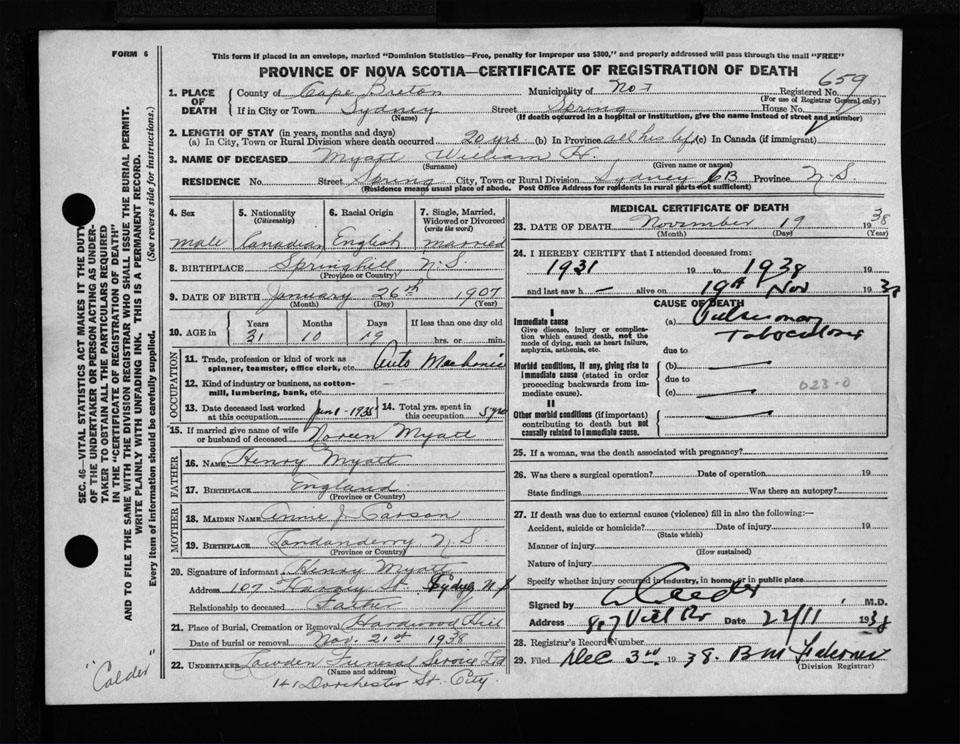 FORM 6
This form if placed in an envelope, marked "Dominion Statistics—Free, penalty for improper use $300," and properly addressed will pass through the mail "FREE"
PROVINCE OF NOVA SCOTIA—CERTIFICATE OF REGISTRATION OF DEATH
659
1. PLACE OF DEATH
County of Cape Breton Municipality of Registered No.
(For use of Registrar General only)
If in City or Town Sydney Street Spring House No.
(Name) (If death occurred in a hospital or institution, give the name instead of street and number)
2. LENGTH OF STAY (in years, months and days)
(a) In City, Town or Rural Division where death occurred 20 yrs (b) In Province all his life (c) In Canada (if immigrant)
3. NAME OF DECEASED Myatt William H.
(Surname) (Given name or names)
RESIDENCE No. Street Spring City, Town or Rural Division Sydney CB Province N.S.
(Residence means usual place of abode. Post Office Address for residents in rural parts not sufficient)
4. Sex
male
5. Nationality (Citizenship)
Canadian
6. Racial Origin
English
7. Single, Married, Widowed or Divorced (write the word)
married
8. BIRTHPLACE Springhill N.S.
(Province or Country)
9. DATE OF BIRTH January 26th 1907
(Month) (Day) (Year)
10. AGE in
Years Months Days If less than one day old
31 10 19 hrs. or min.
OCCUPATION
11. Trade, profession or kind of work as spinner, teamster, office clerk, etc. Auto Mechanic
12. Kind of industry or business, as cotton-mill, lumbering, bank, etc.
13. Date deceased last worked at this occupation
14. Total yrs. spent in this occupation 5 yrs
15. If married give name of wife or husband of deceased Noreen Myatt
FATHER
16. NAME Henry Myatt
17. BIRTHPLACE England
(Province or Country)
MOTHER
18. MAIDEN NAME Annie J Carson
19. BIRTHPLACE Londonderry N.S.
(Province or Country)
20. Signature of informant Henry Myatt
Address 107 St Sydney N S
Relationship to deceased Father
21. Place of Burial, Cremation or Removal Hardwood Hill
Date of burial or removal Nov. 21st 1938
22. UNDERTAKER Lowden Funeral Service Ltd
(Name and address)
141 Dorchester St. City
MEDICAL CERTIFICATE OF DEATH
23. DATE OF DEATH November 19 1938
(Month) (Day) (Year)
24. I HEREBY CERTIFY that I attended deceased from:
1931 19 to 1938 19
and last saw h alive on 19th Nov 1938
CAUSE OF DEATH
I
Immediate cause
Give disease, injury or complication which caused death, not the mode of dying, such as heart failure, asphyxia, asthenia, etc.
(a) Pulmonary
due to
Morbid conditions, if any, giving rise to immediate cause (stated in order proceeding backwards from immediate cause).
(b)
due to
(c)
023-0
II
Other morbid conditions (if important) contributing to death but not causally related to immediate cause.
25. If a woman, was the death associated with pregnancy?
26. Was there a surgical operation? Date of operation 19
State findings Was there an autopsy?
27. If death was due to external causes (violence) fill in also the following:—
Accident, suicide or homicide? Date of injury 19
(State which)
Manner of injury
(How sustained)
Nature of injury
Specify whether injury occurred in industry, in home, or in public place
Signed by M.D.
Address Date 22/11 1938
28. Registrar's Record Number
29. Filed Dec 3rd 1938.
(Division Registrar)
SEC. 46—VITAL STATISTICS ACT MAKES IT THE DUTY
OF THE UNDERTAKER OR PERSON ACTING AS UNDER-
TAKER TO OBTAIN ALL THE PARTICULARS REQUIRED
IN THE "CERTIFICATE OF REGISTRATION OF DEATH"
AND TO FILE THE SAME WITH THE DIVISION REGISTRAR WHO SHALL ISSUE THE BURIAL PERMIT.
WRITE PLAINLY WITH UNFADING INK. THIS IS A PERMANENT RECORD.
Every item of information should be carefully supplied. (See reverse side for instructions.)
"Calder"